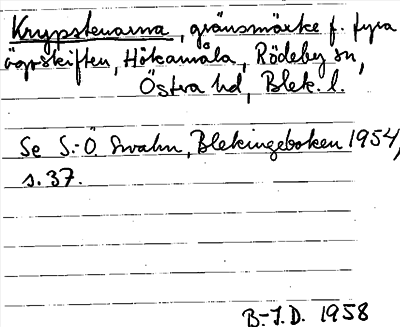 Krypstenarna, gränsmärke f. fyra
ägoskiften, Hökamåla, Rödeby sn,
Östra hd, Blek. l.
Se S.-Ö. Swahn, Blekingeboken 1954,
s. 37.
B-J.D. 1958